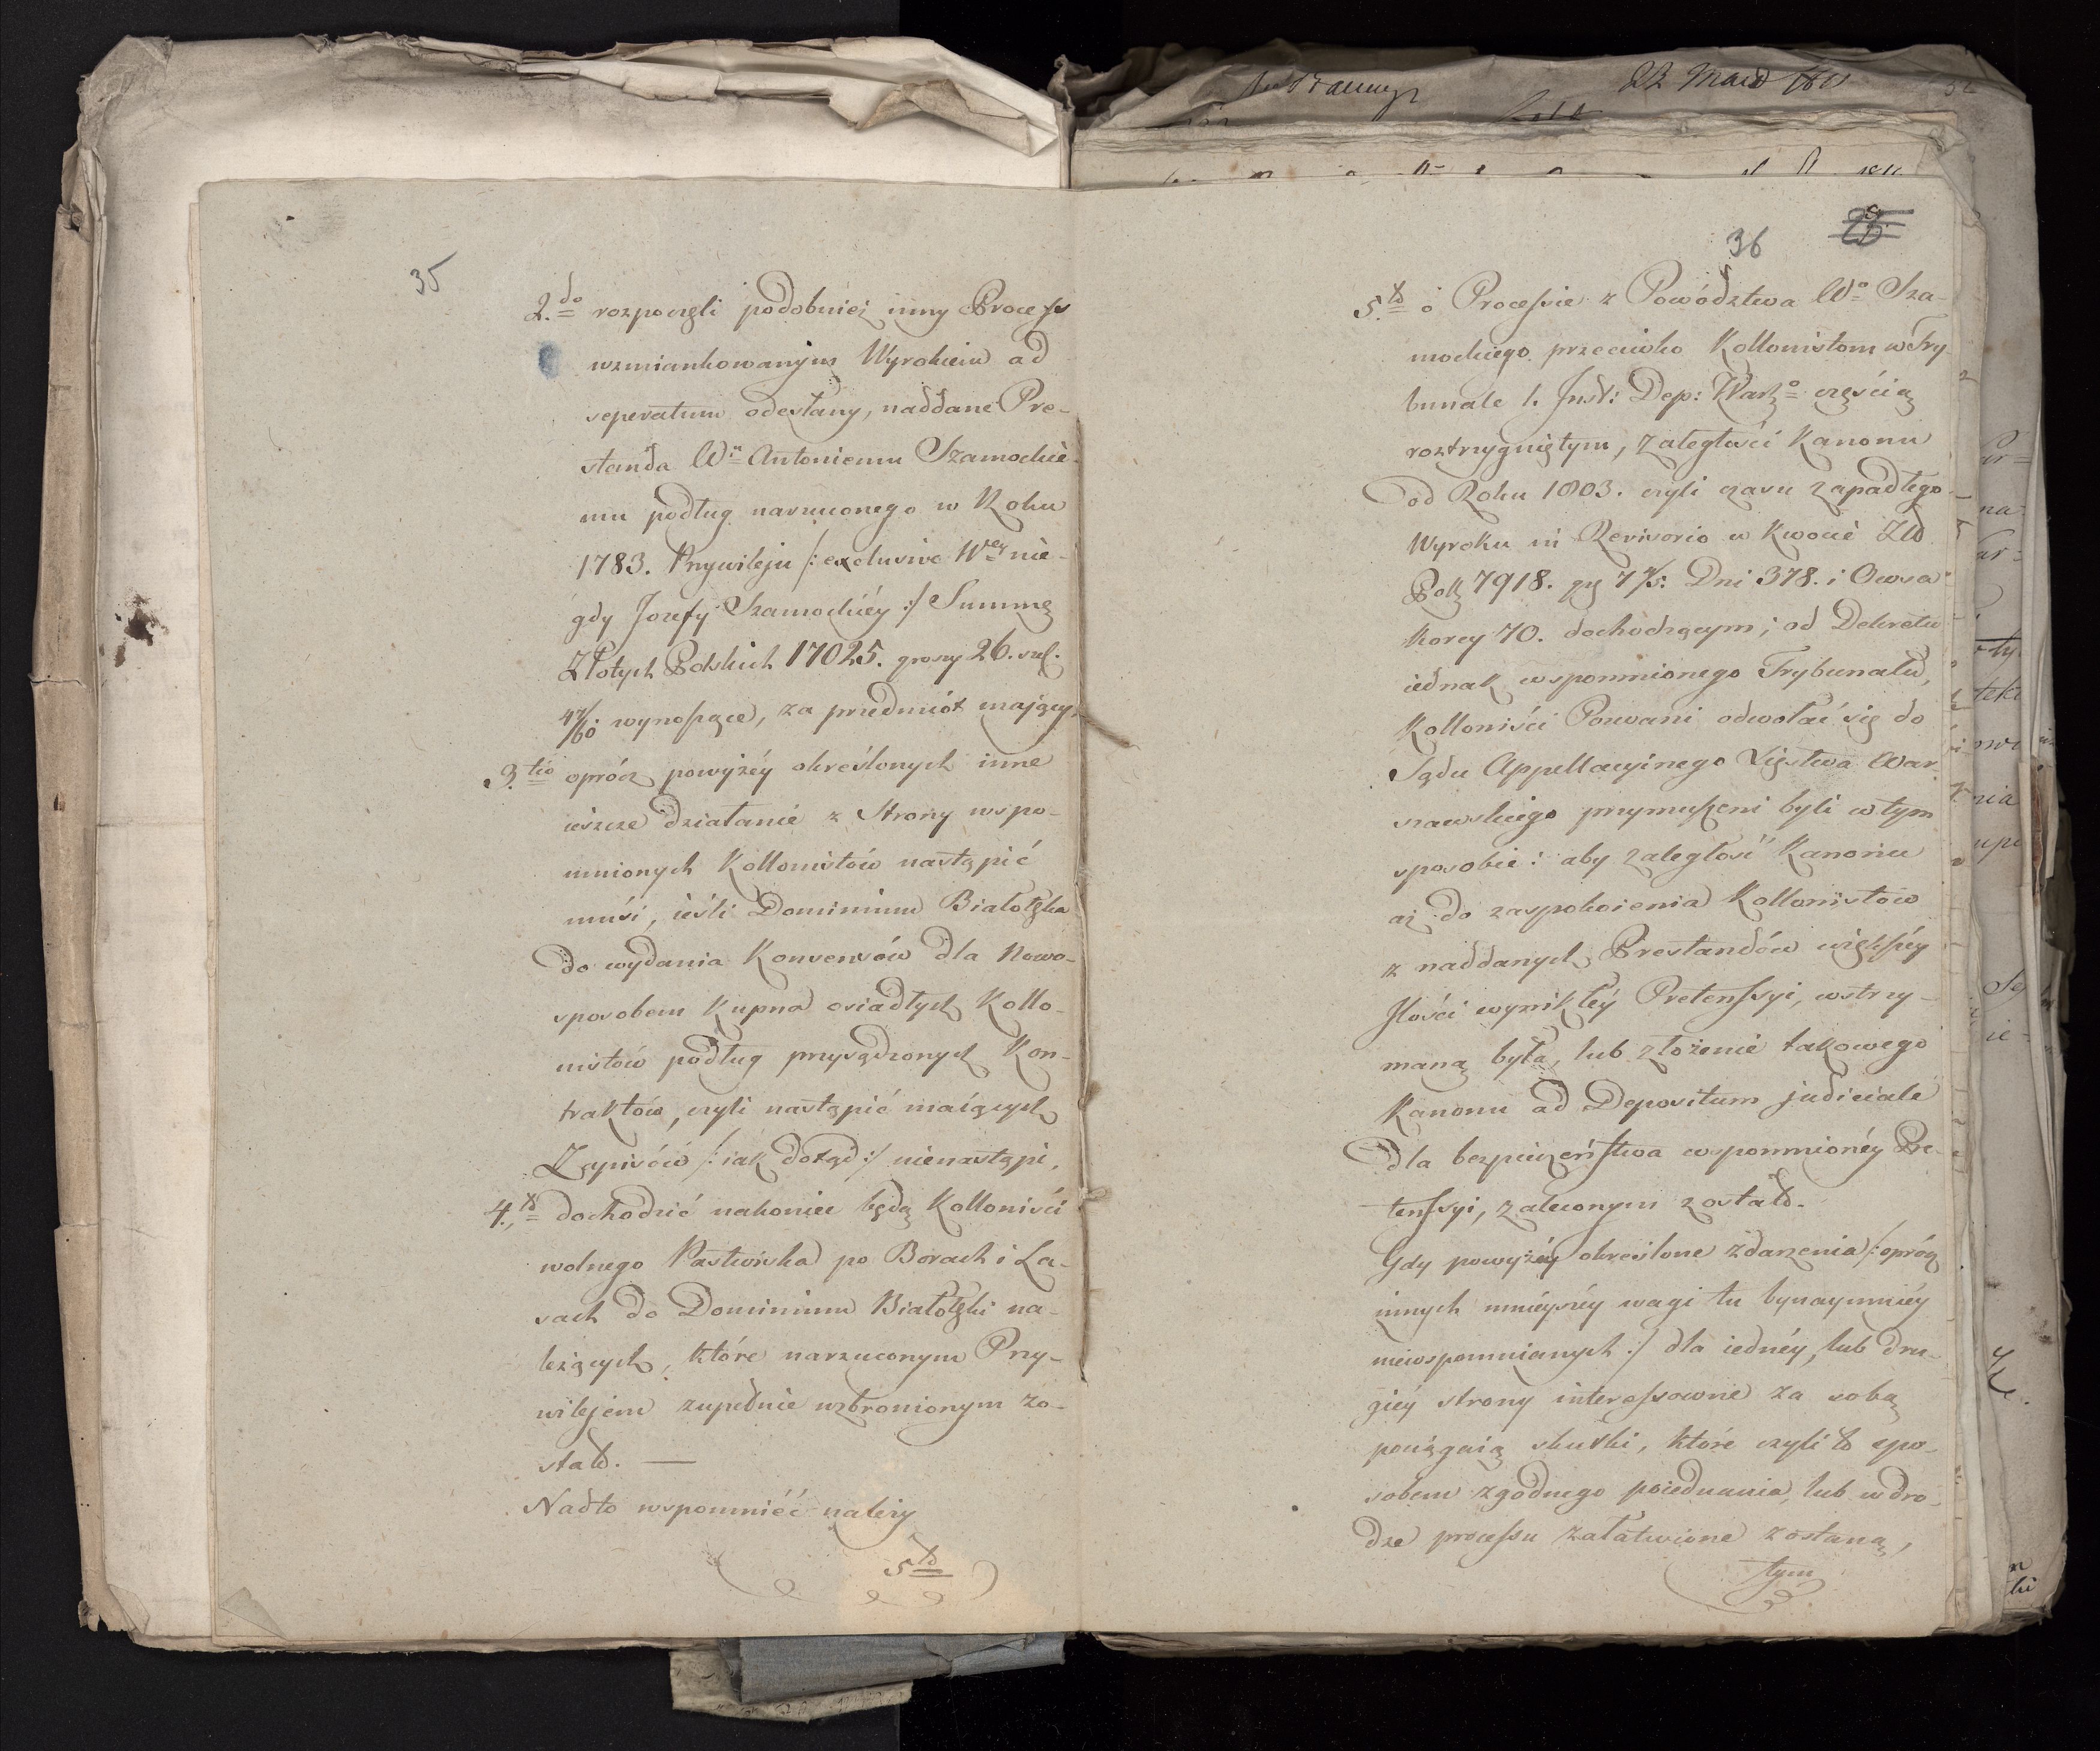 35
2.do rozpoczęli podobnież inny Process
wzmiankowanym Wyrokiem ad
seperatum odesłany, naddane Pre-
standa Wu Antoniemu Szamockie-
mu podług narzuconego w Roku
1783. Przywileju /: exclusive Wey nie-
gdy Jozefy Szamockiéy :/ Summę
Złotych Polskich 17025. groszy 26. szel.
wynoszące, za przedmiót mający,
3.tio oprócz powyżéy określonych inne
ieszcze działanie z Strony wspo-
mnionych Kollonistów nastąpić
musi, ieśli Dominium Białołęka
do wydania Konsensów dla Nowo-
sposobem Kupna osiadłych Kollo-
nistów podług przysądzonych Kon-
traktów, czyli nastąpić maiących
Zapisów /: iak dotąd :/ nienastąpi,
4.to dochodzić nakoniec będą Kolloniści
wolnego Pastwiska po Borach i La-
sach do Dominium Białołęki na-
leżących, które narzuconym Przy-
wilejem zupełnie wzbronionym zo-
stało. —
Nadto wspomniéć należy
5to
36
25
5.to o Processie z Powództwa Wo Sza-
mockiego przeciwko Kollonistom w Try-
bunale 1. Inst: Dep: Warszo częścią
roztrzygniętym, zaległości Kanonu
od Roku 1803. czyli czasu zapadłego
Wyroku in Revisorio w Kwocie Zło
Pols 7918. gr 7 Dni 378. i Owsa
Korcy 70. dochodzącym; od Dekretu
iednak wspomnionego Trybunału,
Kolloniści Pozwani odwołać się do
Sądu Appellacyinego Xięstwa War-
szawskiego przymuszeni byli w tym
sposobie: aby zaległość Kanonu
aż do zaspokoienia Kollonistow
z naddanych Prestandów większéy
Ilości wynikłéy Pretenssyi, wstrzy-
maną była, lub złożenie takowego
Kanonu ad Depositum judiciale
dla bezpieczeństwa wspomnionéy Pre-
tenssyi, zaleconym zostało.
Gdy powyżéy określone zdarzenia /: oprócz
innych mnieyszéy wagi tu bynaymniéy
niewspomnianych :/ dla iednéy, lub dru-
giéy strony interessowne za sobą
pociągaią skutki, które czyli to spo-
sobem zgodnego poiednania, lub w dro-
dze processu załatwione zostaną,
tym